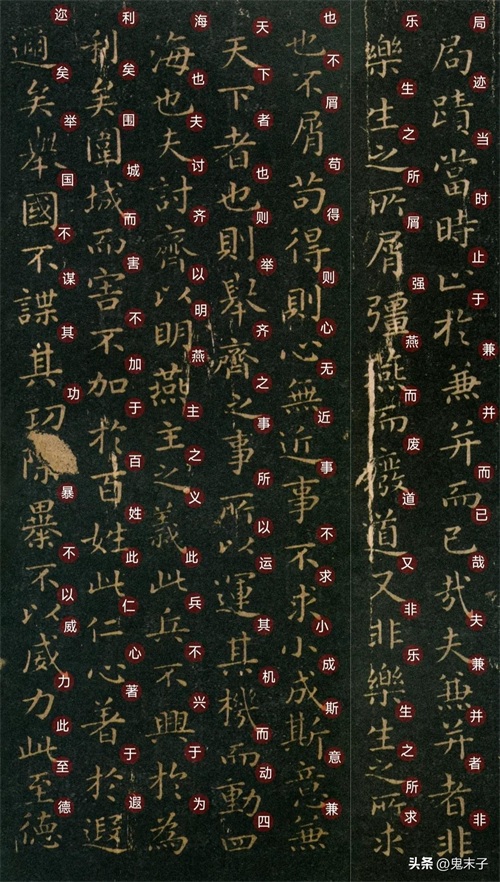 局蹟當時止於兼并而已哉夫兼并者非
局迹当时止于兼并而已哉夫兼并者非
樂生之所屑彊燕而廢道又非樂生之所求
乐生之所屑强燕而废道又非乐生之所求
也不屑苟得則心無近事不求小成斯意兼
也不屑苟得则心无近事不求小成斯意兼
天下者也則舉齊之事所以運其機而動四
天下者也则举齐之事所以运其机而动四
海也夫討齊以明燕主之義此兵不興於為
海也夫讨齐以明燕主之义此兵不兴于为
利矣圍城而害不加於百姓此仁心著於遐
利矣围城而害不加于百姓此仁心著于遐
邇矣舉國不謀其功除暴不以威力此至德
迩矣举国不谋其功暴不以威力此至德
头条 @鬼末子